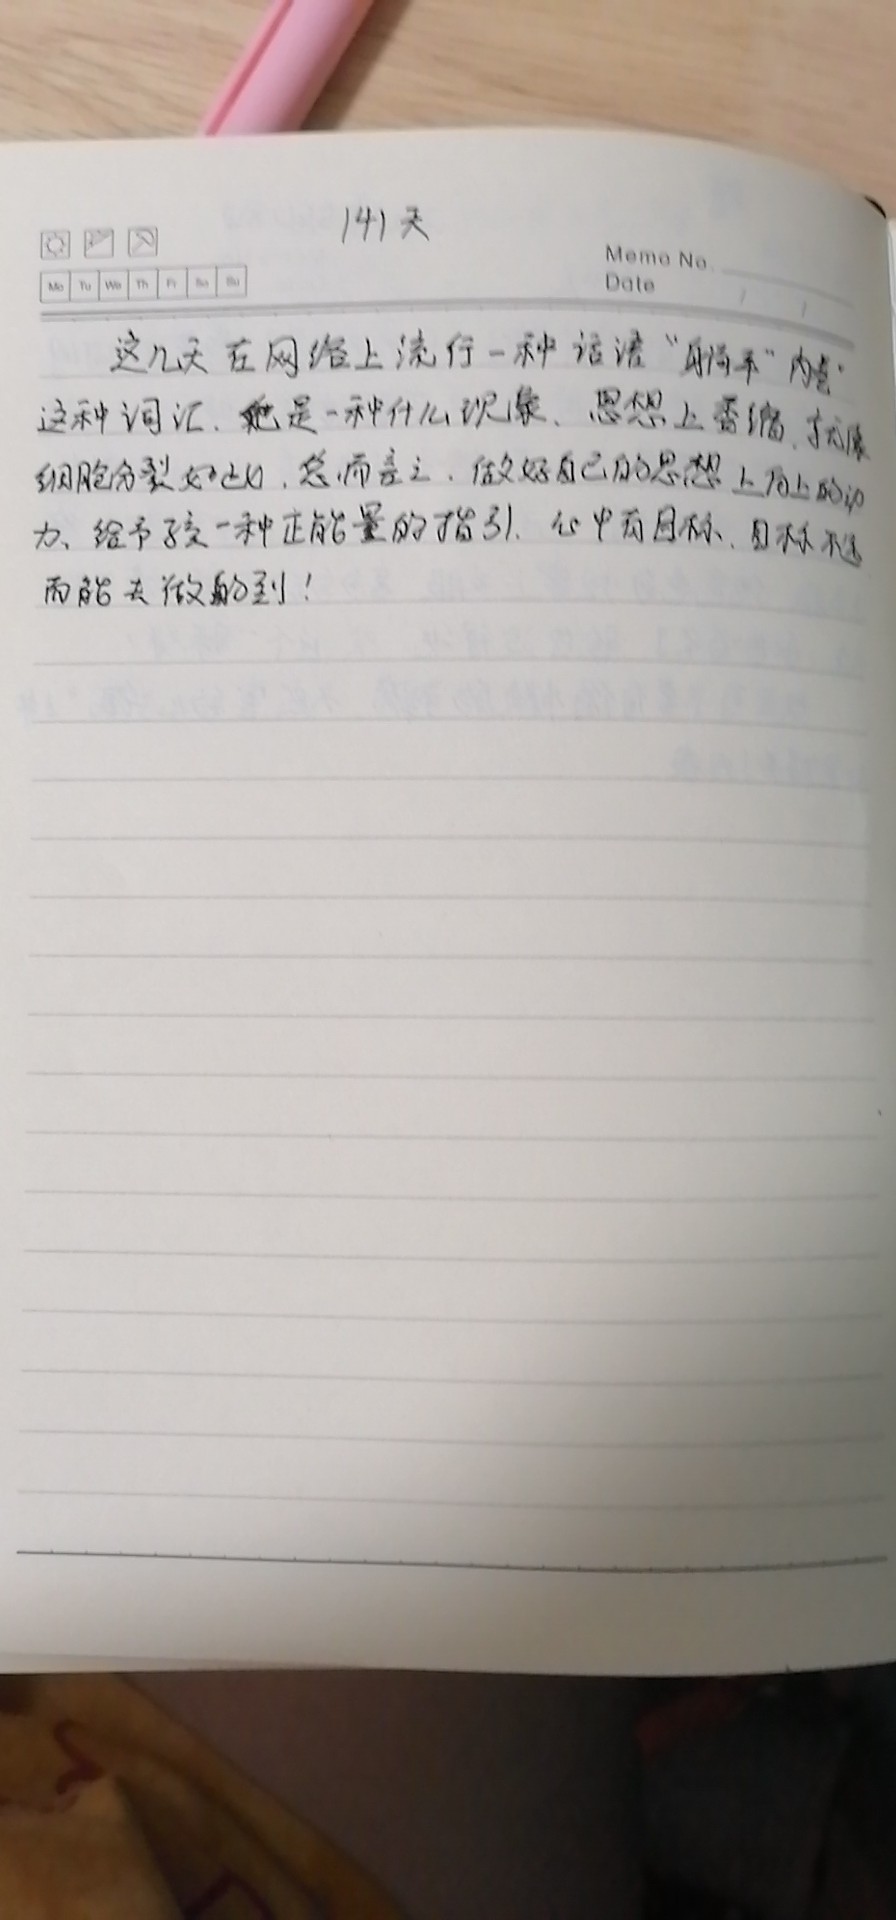 141天
Memo No.
Date / /
Mo Tu We Th Fr Sa Su
这几天在网络上流行一种话语“身躺平”内卷”
这种词汇、她是一种什么现象、思想上蜷缩、就像
细胞分裂如此、总而言之、做好自己的思想上向上的动
力、给予孩一种正能量的指引、心中有目标、目标不远
而能去做的到！